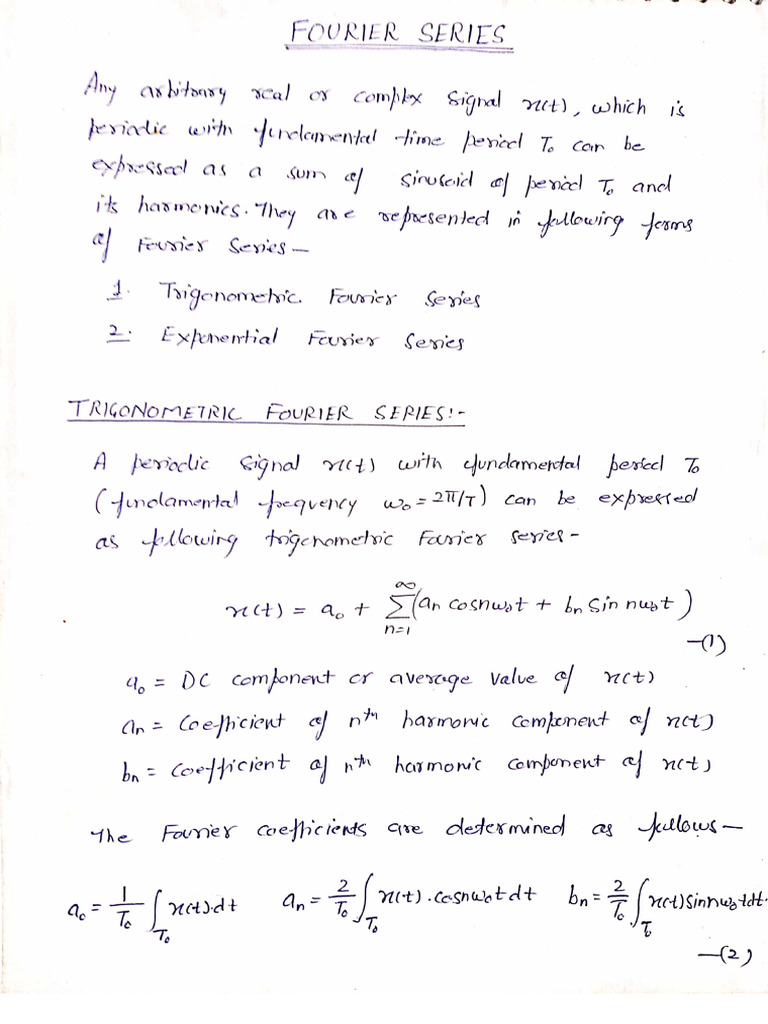 FOURIER SERIES
Any arbitrary real or complex signal x(t), which is
periodic with fundamental time period T₀ can be
expressed as a sum of sinusoid of period T₀ and
its harmonics. They are represented in following forms
of Fourier Series—
1. Trigonometric Fourier Series
2. Exponential Fourier Series
TRIGONOMETRIC FOURIER SERIES:-
A periodic signal x(t) with fundamental period T₀
(fundamental frequency ω₀ = 2π/T) can be expressed
as following trigonometric Fourier series-
x(t) = a₀ + ∑_{n=1}^{∞} (aₙ cosnω₀t + bₙ sin nω₀t) —(1)
a₀ = DC component or average value of x(t)
aₙ = Coefficient of nᵗʰ harmonic component of x(t)
bₙ = Coefficient of nᵗʰ harmonic component of x(t)
The Fourier coefficients are determined as follows—
a₀ = 1/T₀ ∫_{T₀} x(t).dt aₙ = 2/T₀ ∫_{T₀} x(t).cosnω₀t dt bₙ = 2/T₀ ∫_{T₀} x(t) sinnω₀t dt.
—(2)